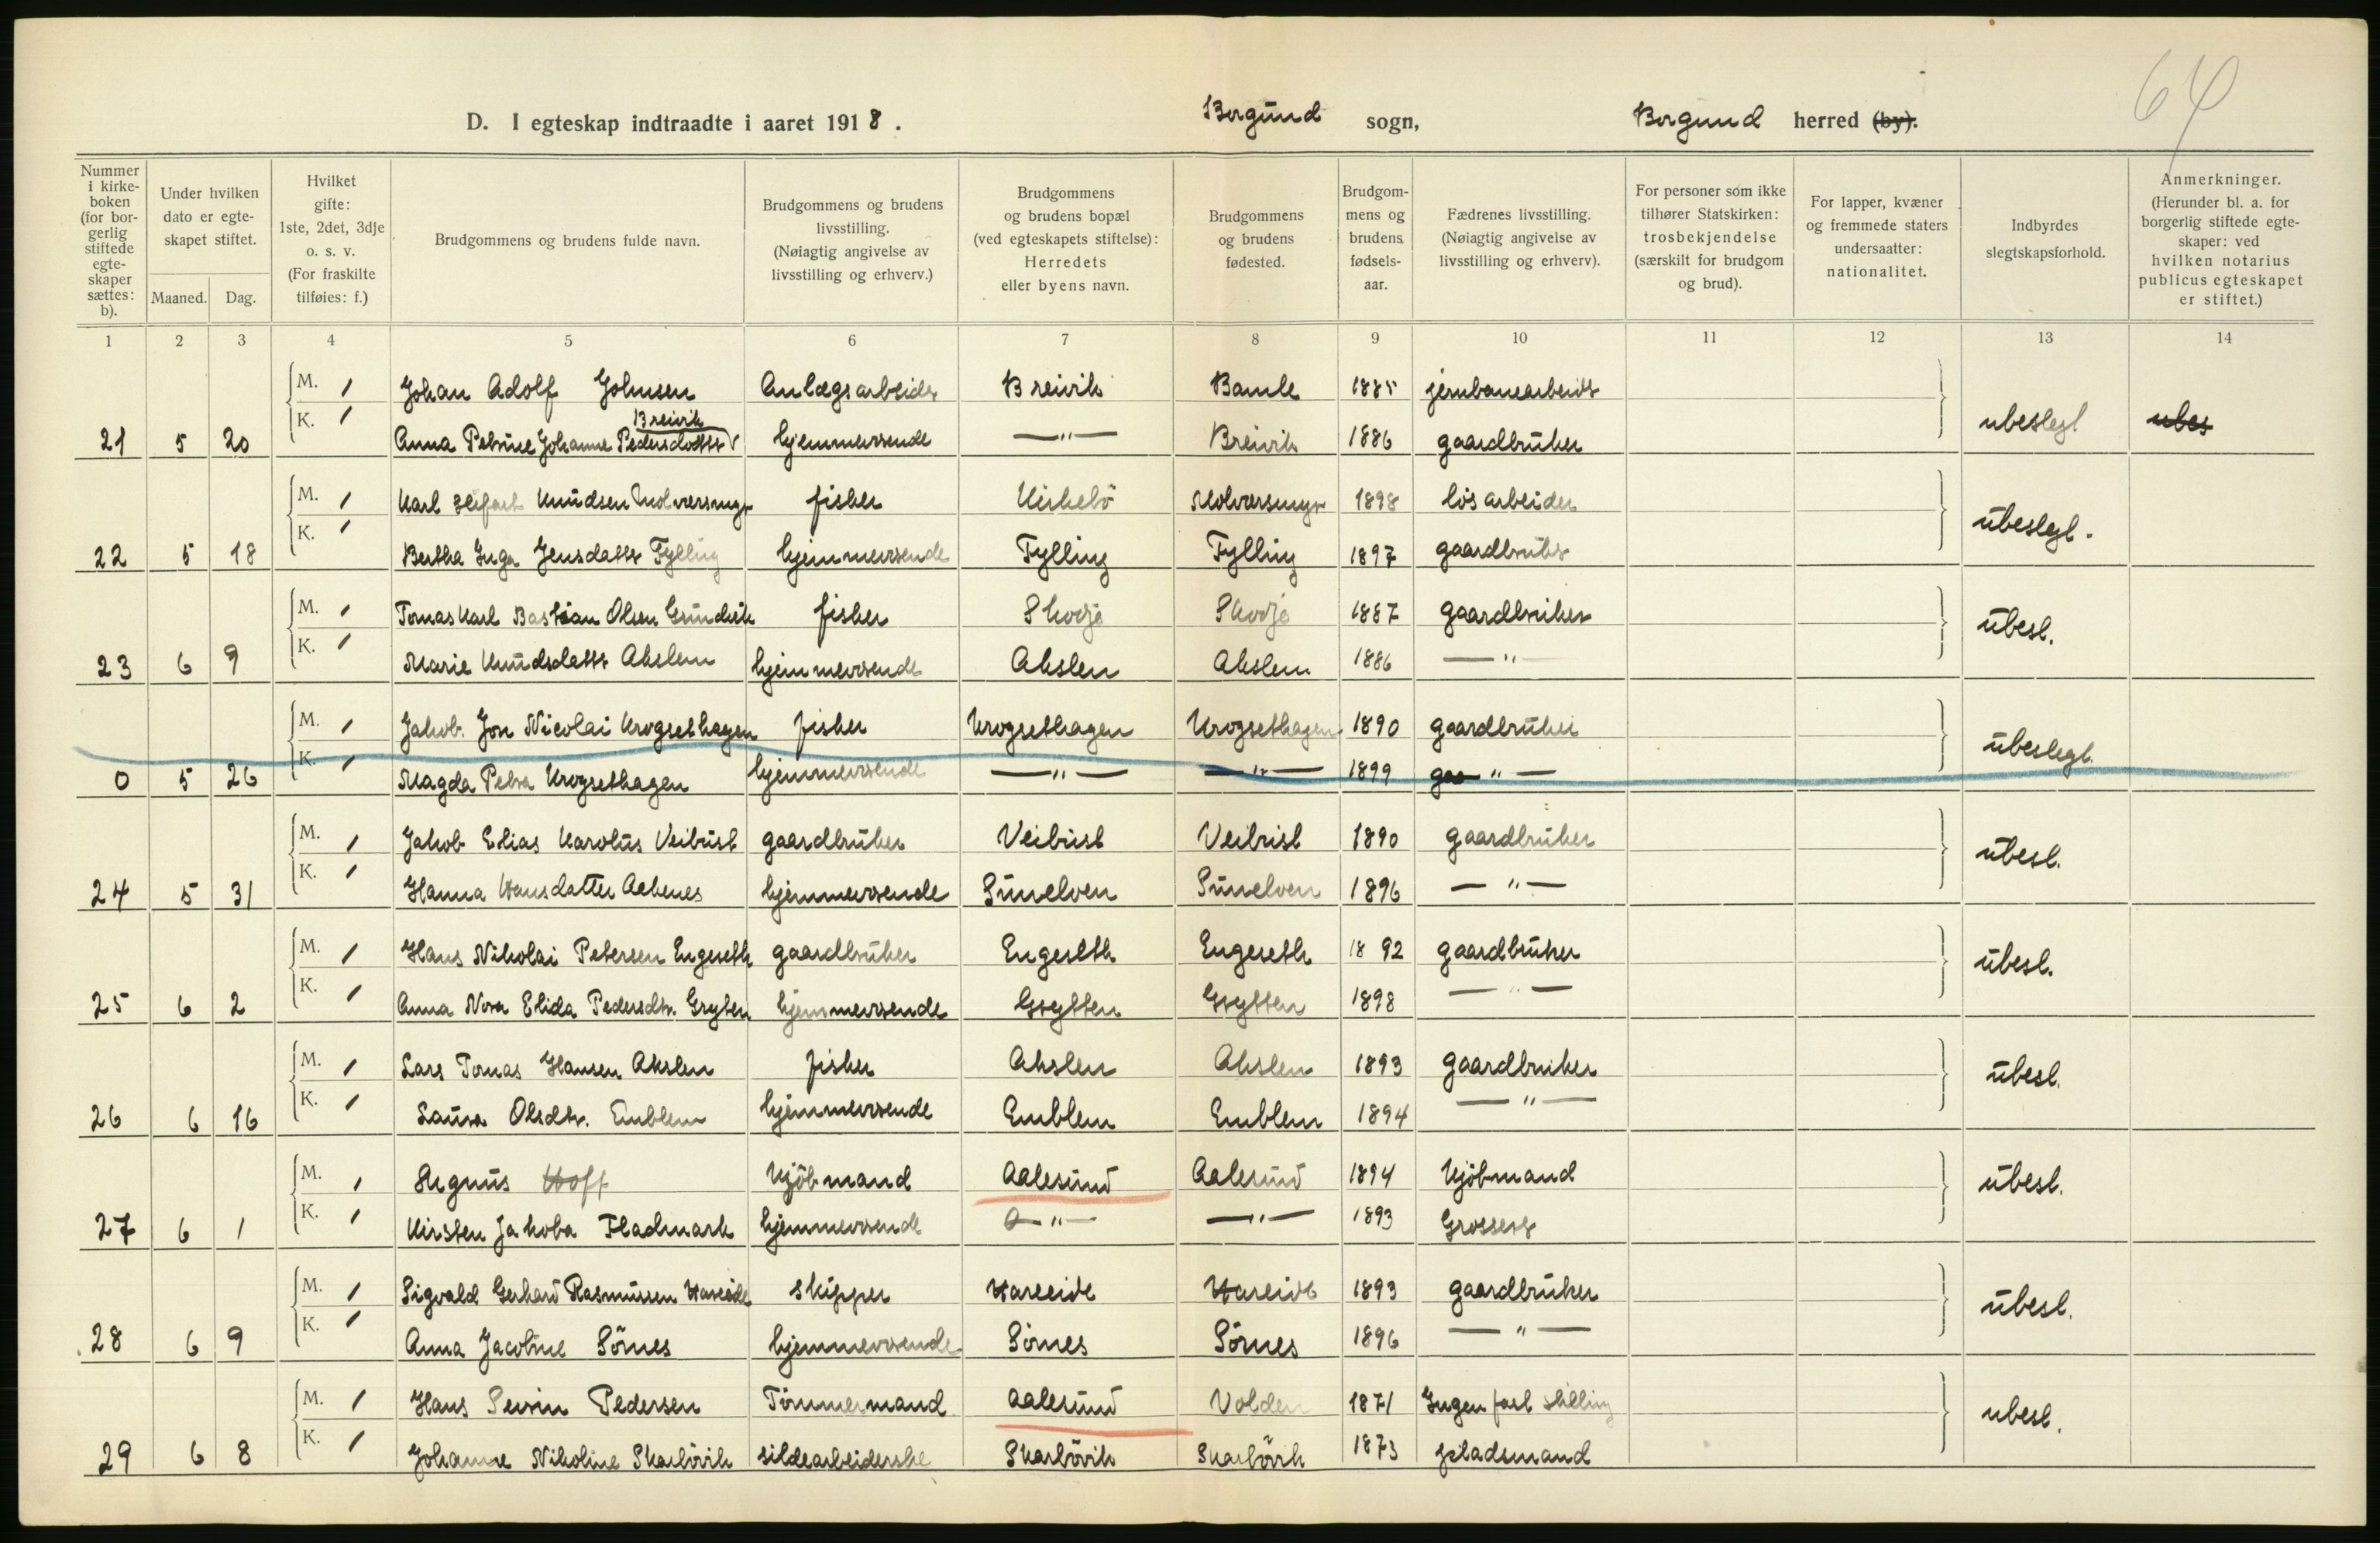 64
D. I egteskap indtraadte i aaret 1918. Borgund sogn, Borgund herred (by).
Nummer i kirkeboken (for borgerlig stiftede egteskaper sættes: b).
Under hvilken dato er egteskapet stiftet.
Maaned. Dag.
Hvilket gifte: 1ste, 2det, 3dje o. s. v. (For fraskilte tilføies: f.)
Brudgommens og brudens fulde navn.
Brudgommens og brudens livsstilling. (Nøiagtig angivelse av livsstilling og erhverv.)
Brudgommens og brudens bopæl (ved egteskapets stiftelse): Herredets eller byens navn.
Brudgommens og brudens fødested.
Brudgommens og brudens fødselsaar.
Fædrenes livsstilling. (Nøiagtig angivelse av livsstilling og erhverv).
For personer som ikke tilhører Statskirken: trosbekjendelse (særskilt for brudgom og brud).
For lapper, kvæner og fremmede staters undersaatter: nationalitet.
Indbyrdes slegtskapsforhold.
Anmerkninger. (Herunder bl. a. for borgerlig stiftede egteskaper: ved hvilken notarius publicus egteskapet er stiftet.)
1 2 3 4 5 6 7 8 9 10 11 12 13 14
M. 1 Johan Adolf Johnsen Anlægsarbeider Breivik Bamle 1885 jernbanearbeider
Breivik
21 5 20 K. 1 Anna Petrine Johanne Pedersdatter hjemmeværende —"— Breivik 1886 gaardbruker ubeslegt ubes
M. 1 Karl Knudsen Molværsmyr fisker Kirkebö Molværsmyr 1898 løsarbeider
22 5 18 K. 1 Bertha Inga Jensdatter Fylling hjemmeværende Fylling Fylling 1897 gaardbruker ubeslegt.
M. 1 Tomas Karl Bastian Olsen Grindvik fisker Skodje Skodje 1887 gaardbruker
23 6 9 K. 1 Marie Knudsdatter Akslen hjemmeværende Akslen Akslen 1886 —"— ubesl.
M. 1 Jakob Jon Nicolai Krogsethagen fisker Krogsethagen Krogsethagen 1890 gaardbruker
0 5 26 K. 1 Magda Petra Krogsethagen hjemmeværende —"— —"— 1899 gaa —"— ubeslegt.
M. 1 Jakob Elias Karolus Veibust gaardbruker Veibust Veibust 1890 gaardbruker
24 5 31 K. 1 Hanna Hansdatter Aakenes hjemmeværende Sunelven Sunelven 1896 —"— ubesl.
M. 1 Hans Nikolai Petersen Engeseth gaardbruker Engeseth Engeseth 1892 gaardbruker
25 6 2 K. 1 Anna Nora Elida Pedersdtr. Gryten hjemmeværende Grytten Grytten 1898 —"— ubesl.
M. 1 Lars Tomas Hansen Akslen fisker Akslen Akslen 1893 gaardbruker
26 6 16 K. 1 Laura Olsdtr. Emblem hjemmeværende Emblem Emblem 1894 —"— ubesl.
M. 1 Magnus Hoff Kjöbmand Aalesund Aalesund 1894 Kjöbmand
27 6 1 K. 1 Kirsten Jakoba Fladmark hjemmeværende —"— —"— 1893 Grosserer ubesl.
M. 1 Sigvald Gerhard Rasmussen Hareide skipper Hareide Hareide 1893 gaardbruker
28 6 9 K. 1 Anna Jacobine Sörnes hjemmeværende Sörnes Sörnes 1896 —"— ubesl.
M. 1 Hans Sevrin Pedersen Tömmermand Aalesund Volden 1871 Ingen fast stilling
29 6 8 K. 1 Johanne Nikoline Skarbövik sildearbeiderske Skarbövik Skarbövik 1873 pladsmand ubesl.